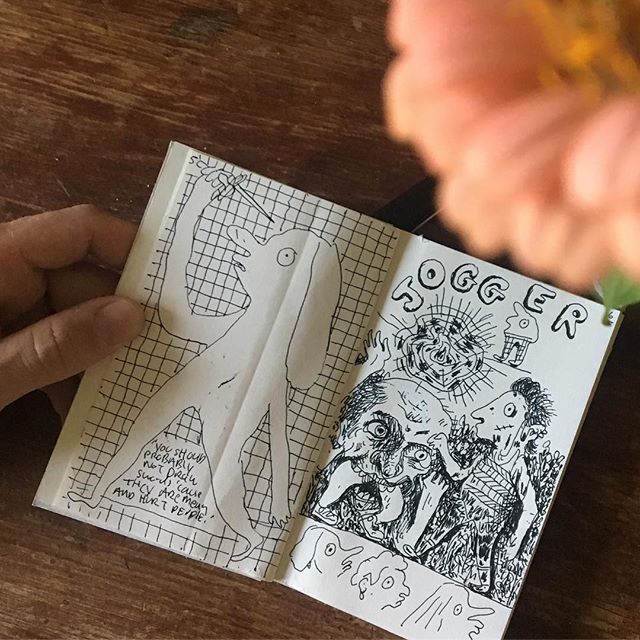 YOU SHOULD
PROBABLY
NOT DRAW
CAUSE
THEY ARE
AND HURT PEOPLE.
JOGGER